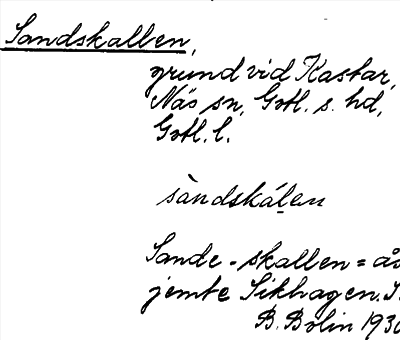 Sandskallen,
grund vid Kastar,
Näs sn, Gotl. s. hd,
Gotl. l.
sàndskálen
Sande-skallen =
jemte Sikhagen.
B. Bolin 1930